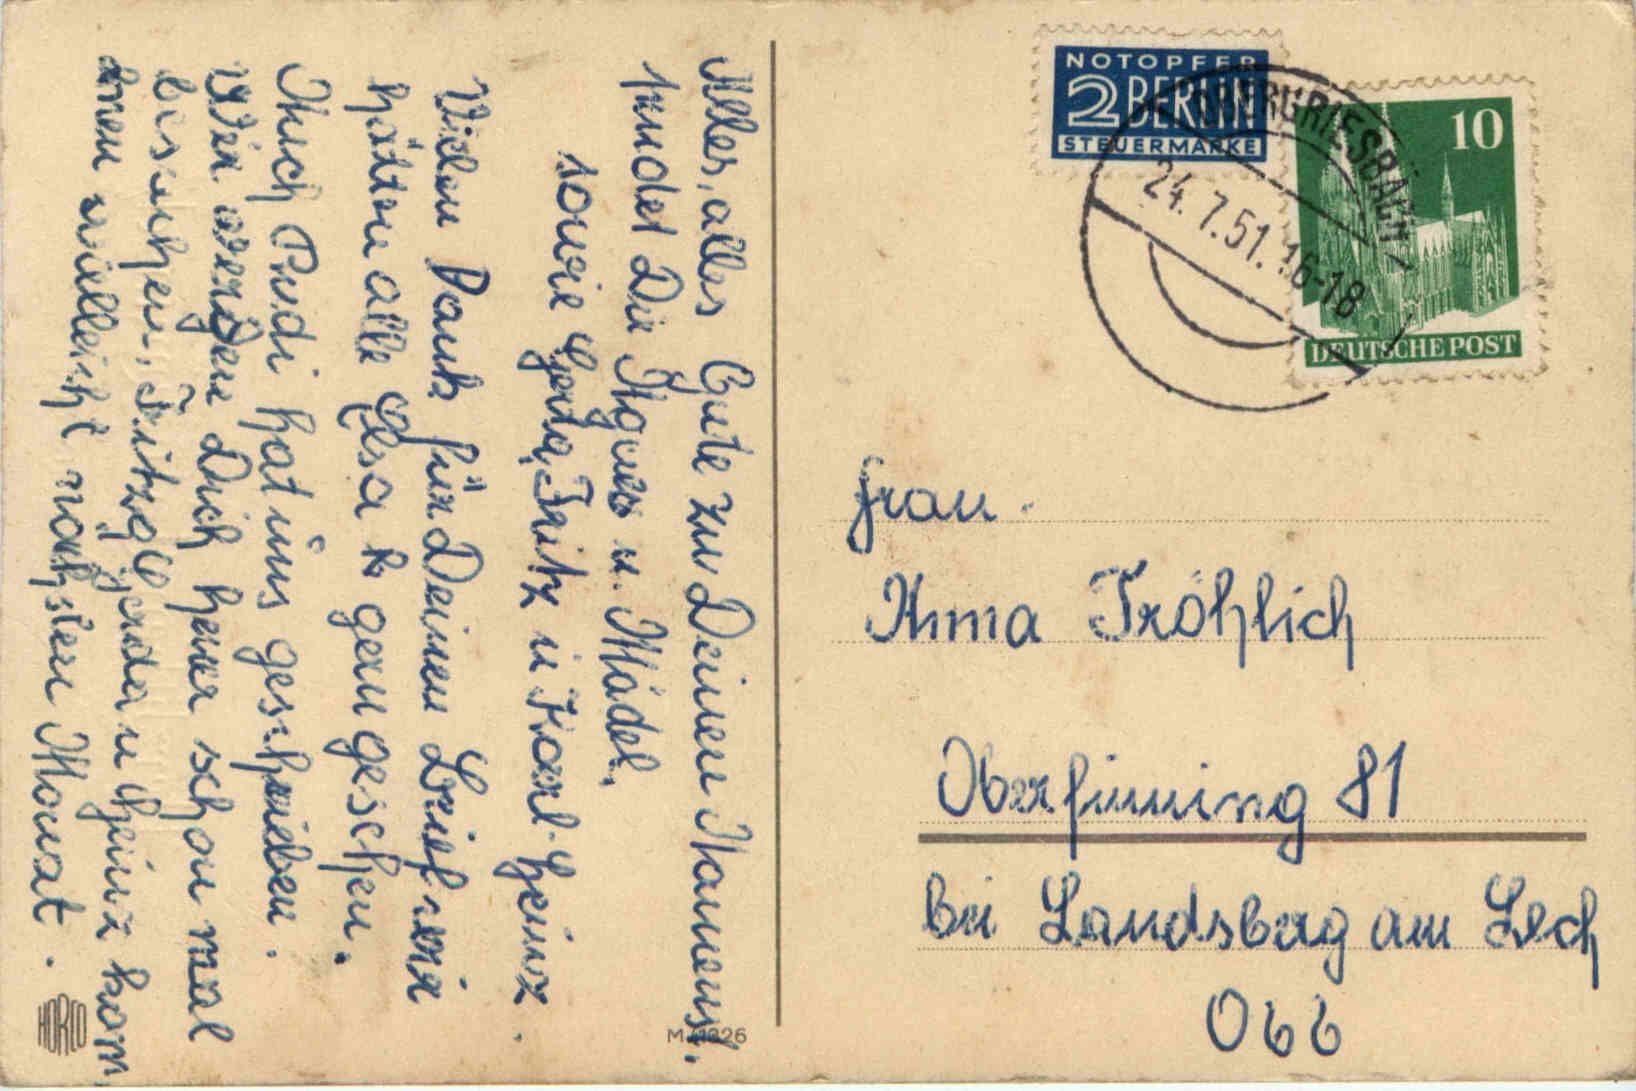 Alles, alles Gute zu Deinem Namens-
sendet Dir Agnes u. Mädel.
sowie Gerda, Fritz u Karl-Heinz
Vielen Dank für Deinen Brief wir
hätten alle Elsa gern gesehen.
Auch Rudi hat uns geschrieben.
Wir werden Dich heuer schon mal
besuchen, Fritz, Gerda u Heinz kom,
men vielleicht nächsten Monat.
HORCO
M 1326
NOTOPFER
2 BERLIN
STEUERMARKE
10
DEUTSCHE POST
OBERGRIESBACH
24.7.51.16-18
Frau.
Anna Fröhlich
Oberfinning 81
bei Landsberg am Lech
Obb